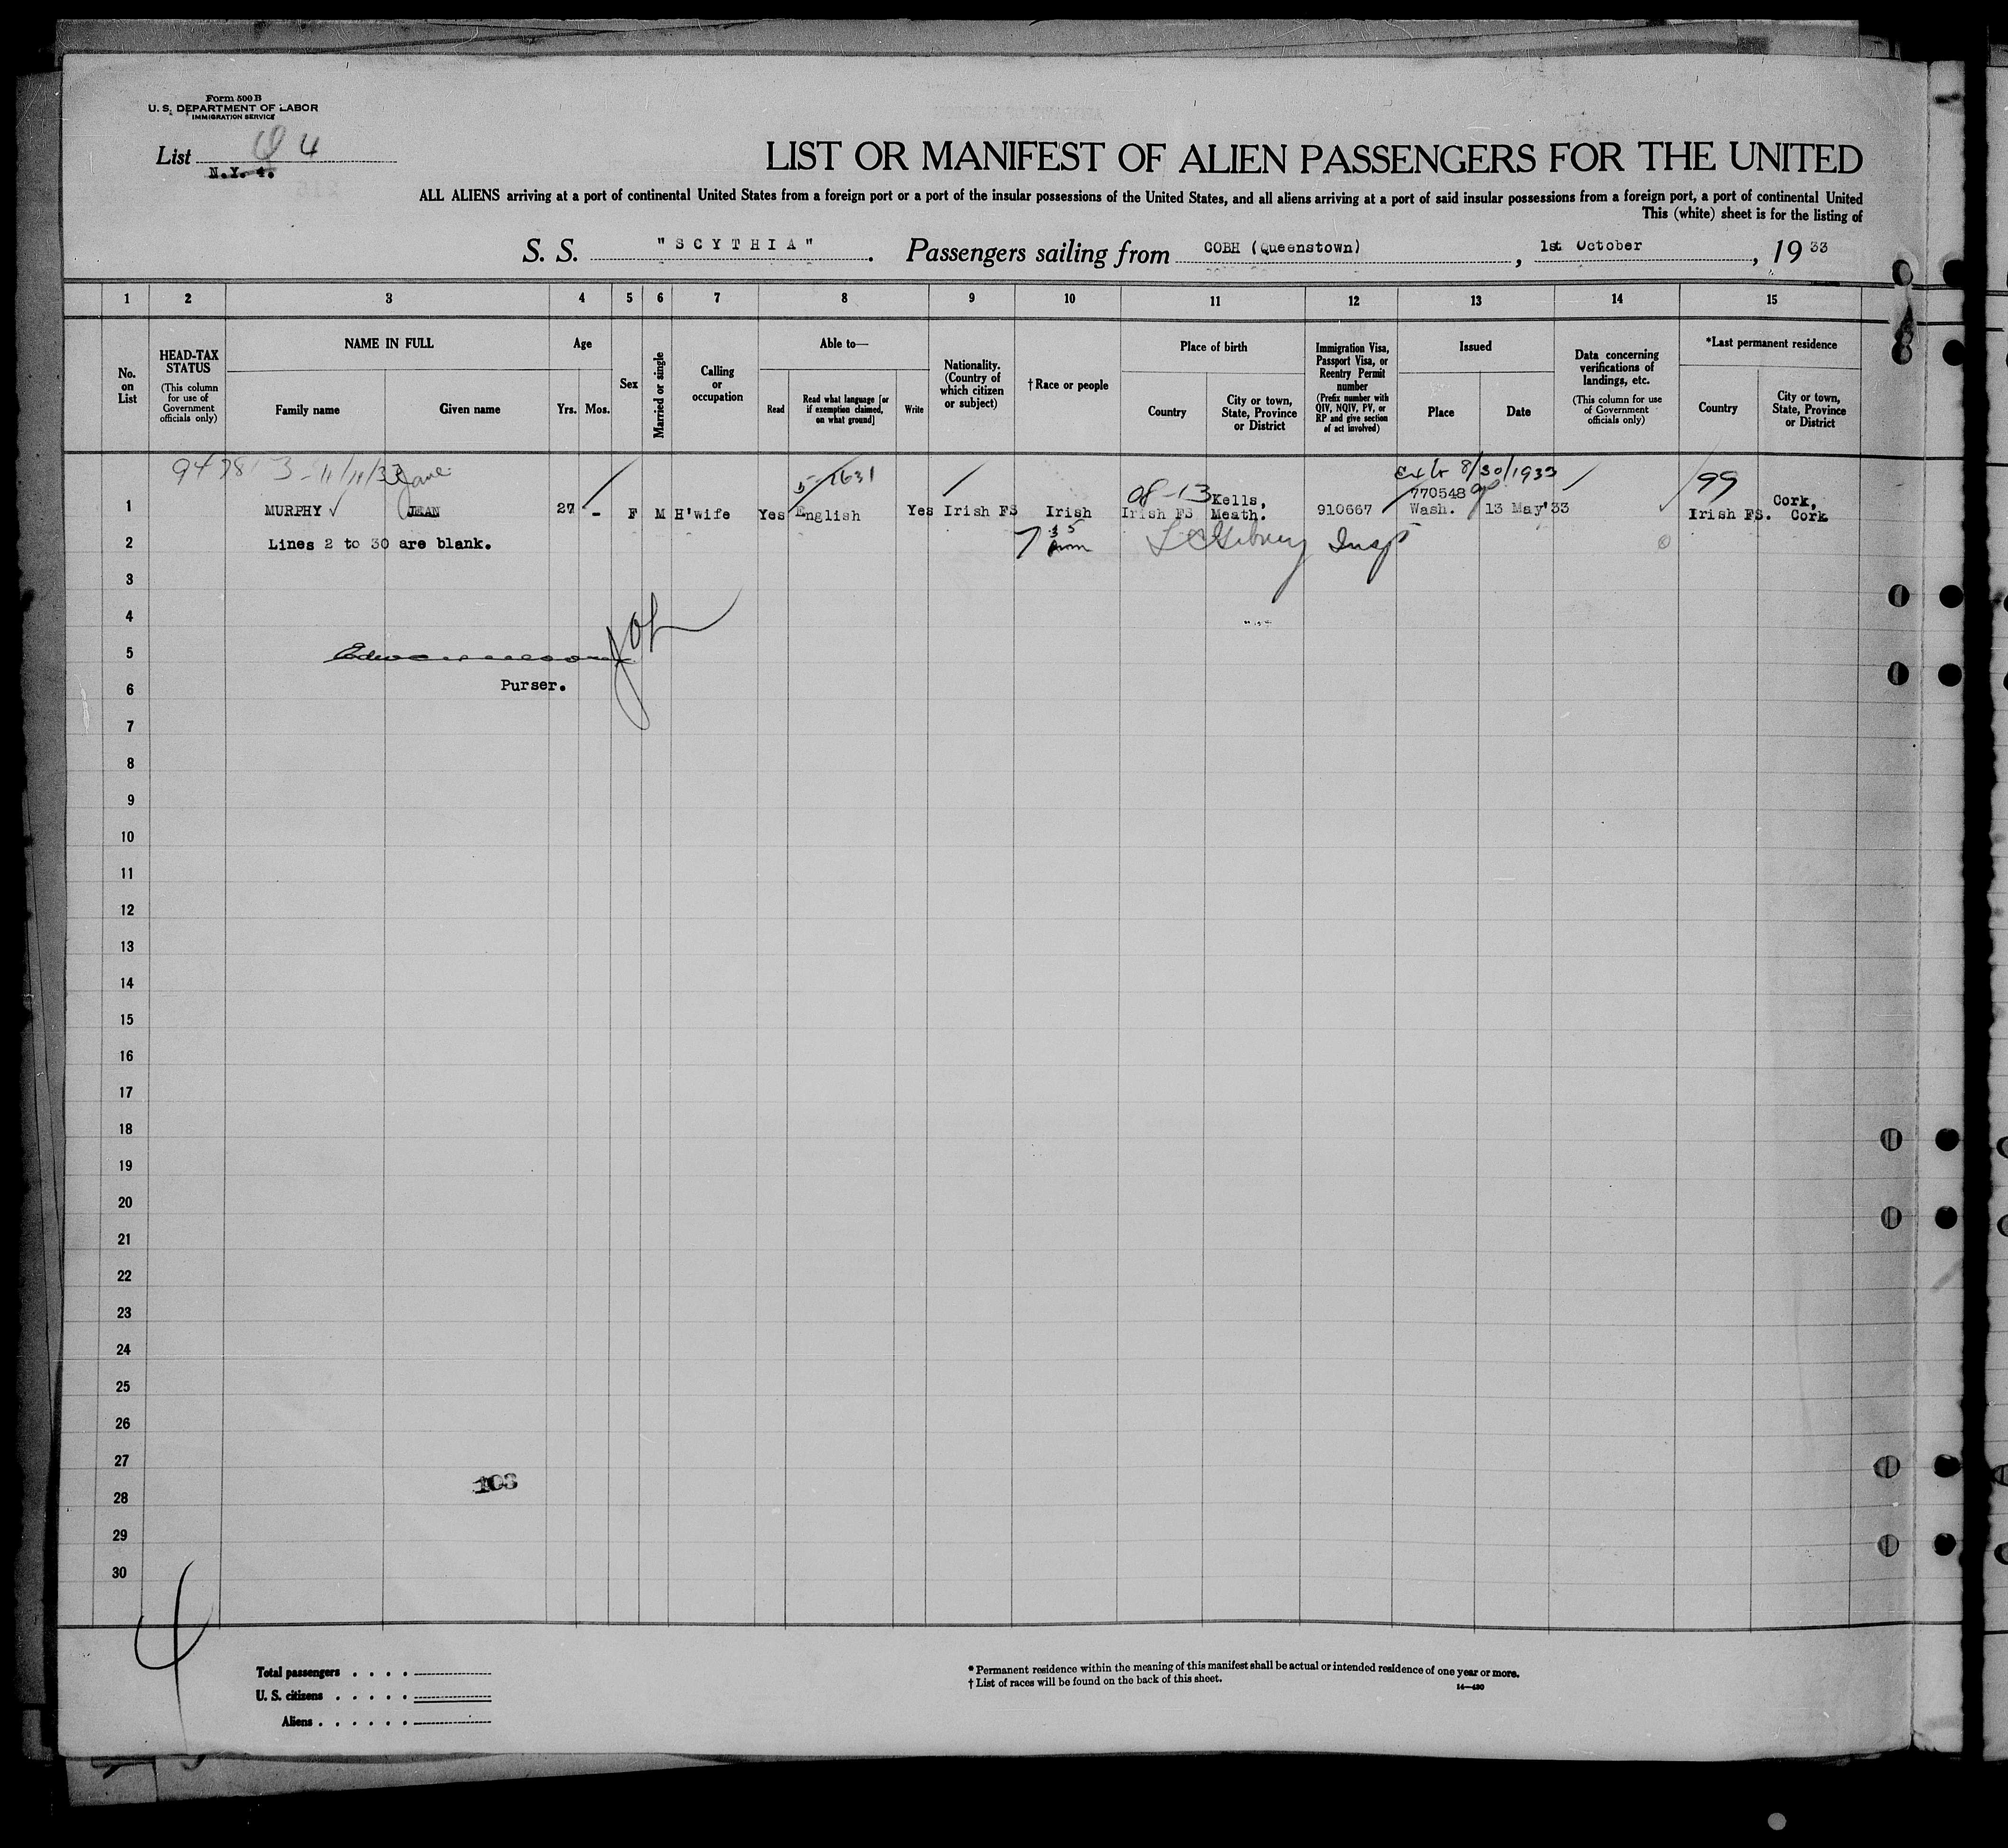 Form 500 B
U. S. DEPARTMENT OF LABOR
IMMIGRATION SERVICE
List 4
N.Y. 4.
LIST OR MANIFEST OF ALIEN PASSENGERS FOR THE UNITED
ALL ALIENS arriving at a port of continental United States from a foreign port or a port of the insular possessions of the United States, and all aliens arriving at a port of said insular possessions from a foreign port, a port of continental United
This (white) sheet is for the listing of
S. S. "SCYTHIA". Passengers sailing from COBH (Queenstown), 1st October, 1933
1 2 3 4 5 6 7 8 9 10 11 12 13 14 15
No. on List
HEAD-TAX STATUS
(This column for use of Government officials only)
NAME IN FULL
Family name Given name
Age
Yrs. Mos.
Sex
Married or single
Calling or occupation
Able to—
Read
Read what language [or if exemption claimed, on what ground]
Write
Nationality. (Country of which citizen or subject)
† Race or people
Place of birth
Country
City or town, State, Province or District
Immigration Visa, Passport Visa, or Reentry Permit number
(Prefix number with QIV, NQIV, PV, or RP and give section of act involved)
Issued
Place Date
Data concerning verifications of landings, etc.
(This column for use of Government officials only)
*Last permanent residence
Country
City or town, State, Province or District
3 - 11/11/33 Jane 5-1631 08-13 8/30/1933 99
770548
1 MURPHY JEAN 27 - F M H'wife Yes English Yes Irish FS Irish Irish FS Kells, Meath. 910667 Wash. 13 May'33 Irish FS. Cork, Cork
2 Lines 2 to 30 are blank. 7 35 Insp
3
4
5
6 Purser.
7
8
9
10
11
12
13
14
15
16
17
18
19
20
21
22
23
24
25
26
27
103
28
29
30
Total passengers . . . .
U. S. citizens . . . . .
Aliens . . . . . .
* Permanent residence within the meaning of this manifest shall be actual or intended residence of one year or more.
† List of races will be found on the back of this sheet.
14—430